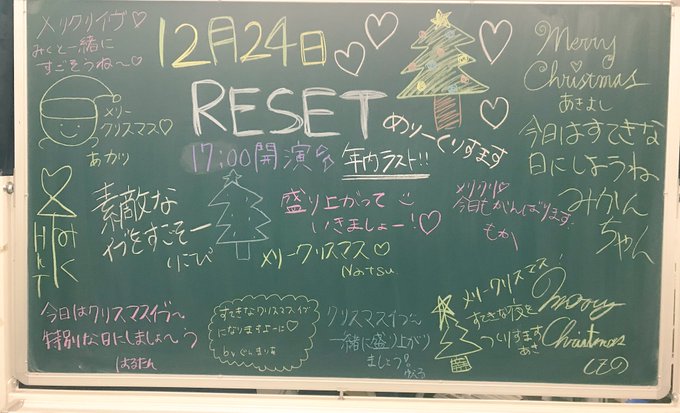 メリクリイヴ♡
みくと一緒に
すごそうね〜♡
12月24日
RESET
17:00開演
年内ラスト!!
めりーくりすます
Merry
Christmas
あきよし
メリー
クリスマス♡
あかり
今日はすてきな
日にしようね
みかん
ちゃん
素敵な
イブをすごそー
りにぴ
盛り上がって
いきましょー!♡
メリークリスマス♡
Natsu
メリクリ♡
今日もがんばります
もか
今日はクリスマスイヴ〜
特別な日にしましょ〜
はるたん
すてきなクリスマスイブ
になりますよーに♡
by
クリスマスイヴ〜
一緒に盛り上がり
ましょう
メリークリスマス
すてきな夜を
つくります
あさ
Merry
Christmas
しの